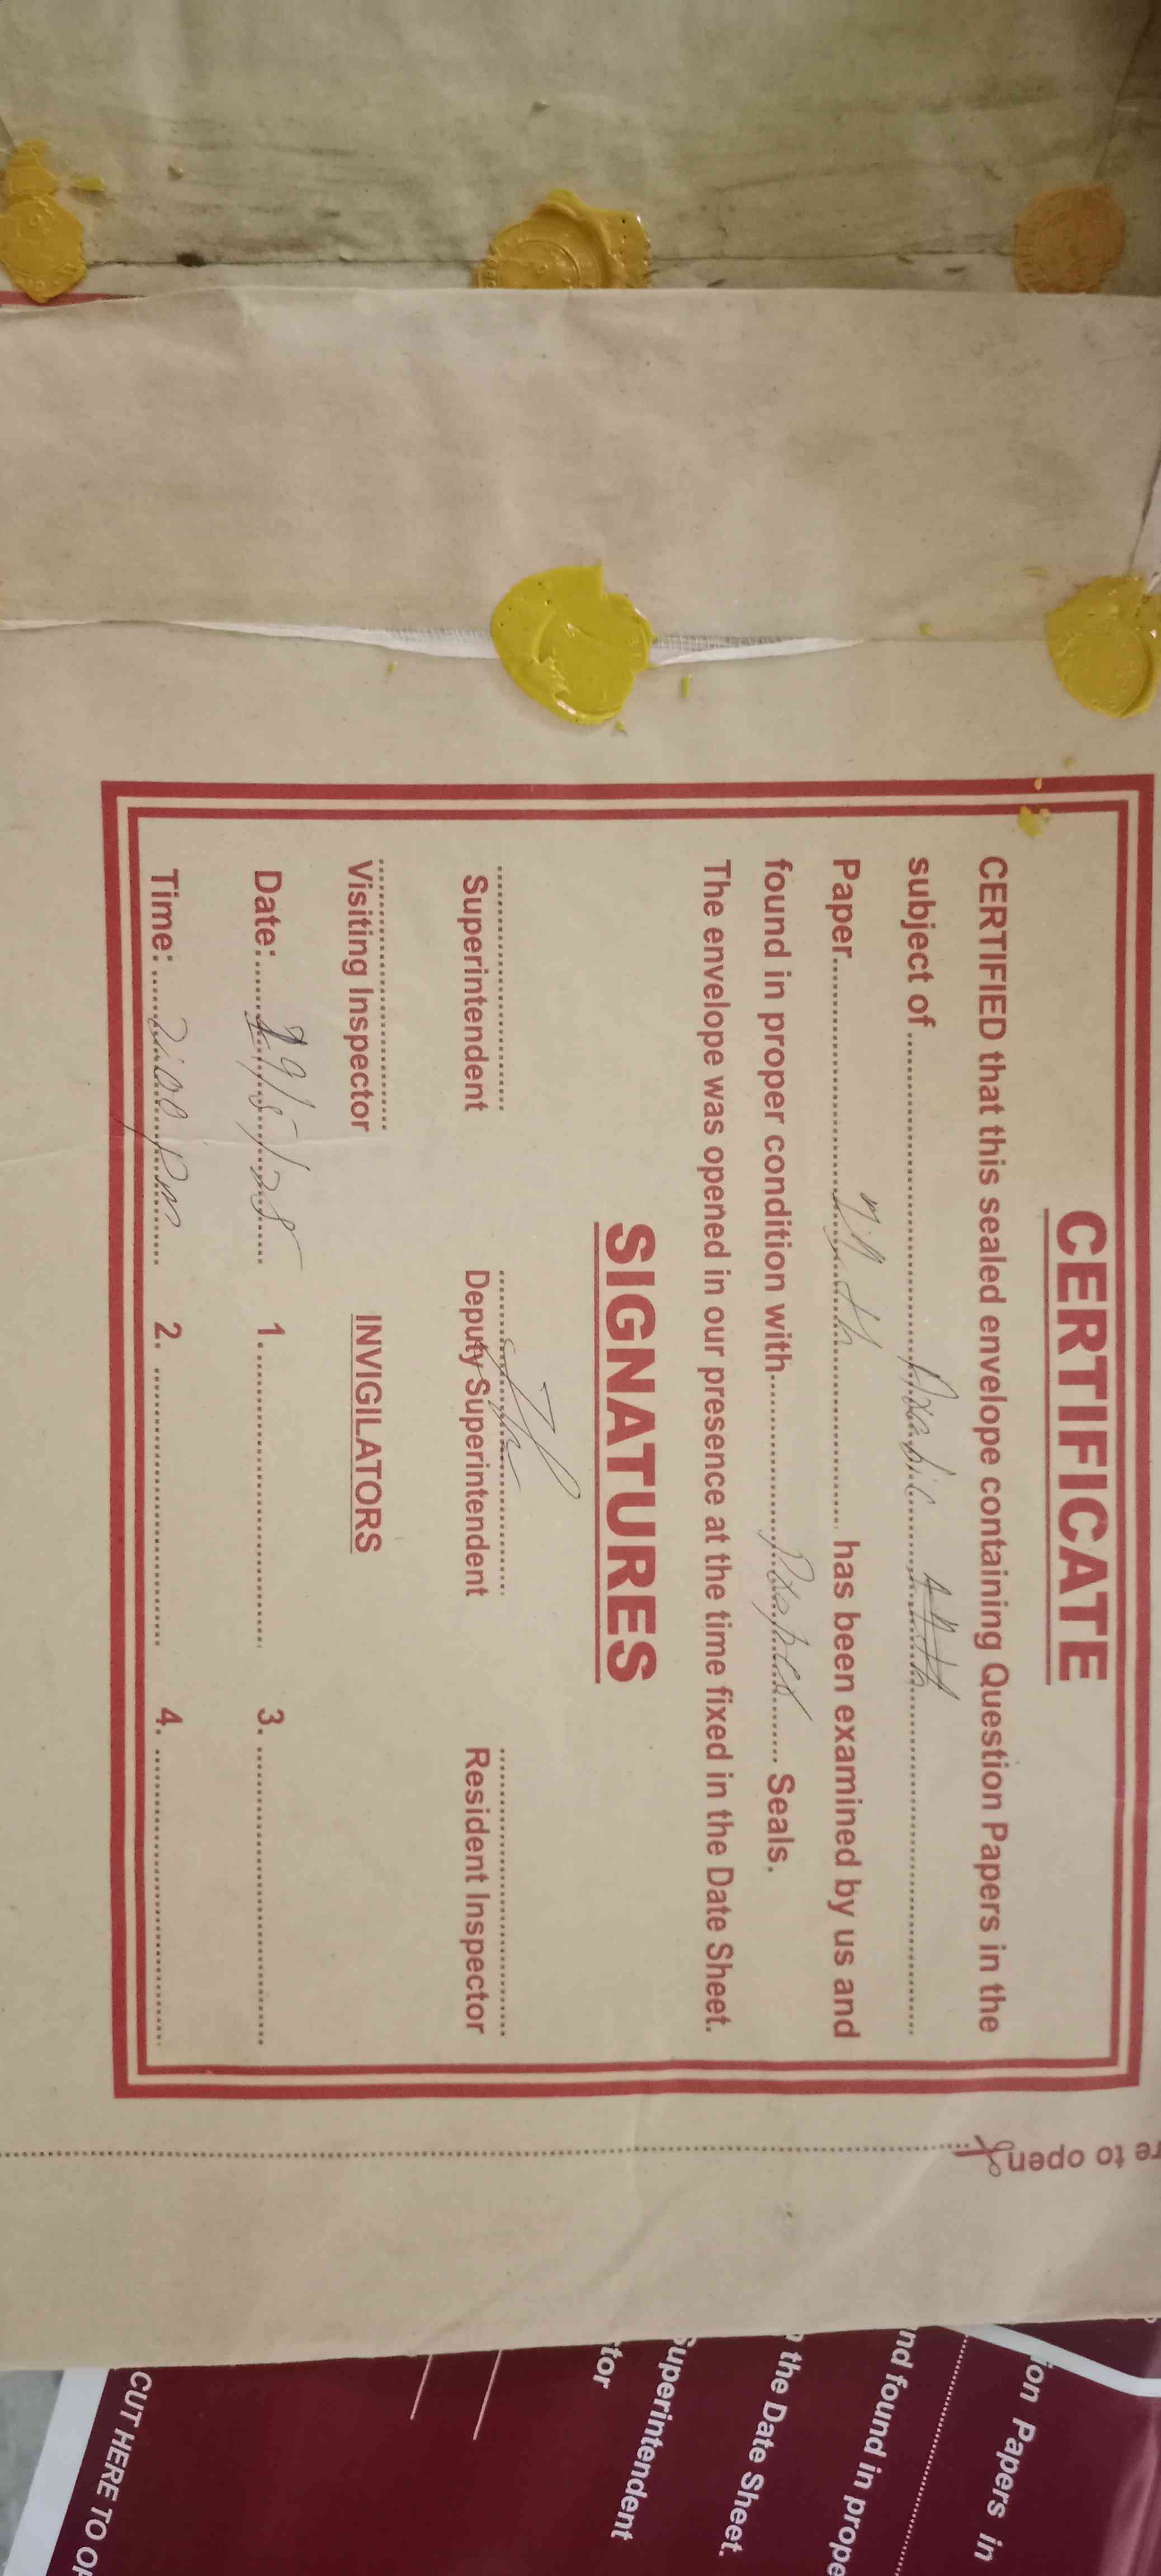 CERTIFICATE
CERTIFIED that this sealed envelope containing Question Papers in the
subject of Arabic
Paper 9th has been examined by us and
found in proper condition with Proper Seals.
The envelope was opened in our presence at the time fixed in the Date Sheet.
SIGNATURES
Superintendent Deputy Superintendent Resident Inspector
Visiting Inspector INVIGILATORS
Date: 29/5/25 1. 3.
Time: 2:00 pm 2. 4.
re to open
ion Papers in
nd found in prope
the Date Sheet.
Superintendent
tor
CUT HERE TO OP